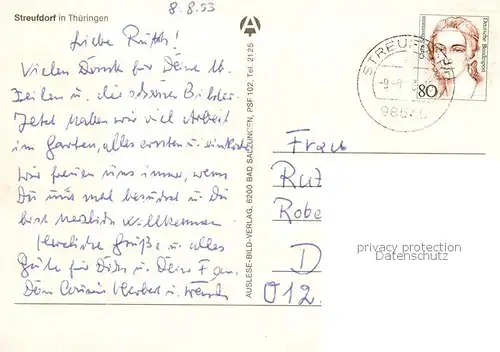 Streufdorf in Thüringen
8.8.93
Liebe Ruth!
Vielen Dank für Deine lb.
Zeilen u. die schönen Bilder.
Jetzt haben wir viel Arbeit
im Garten, alles ernten u.
Wir freuen uns immer, wenn
Du uns mal besuchst u. Du
bist herzlich willkommen.
Herzliche Grüße u. alles
Gute für Dich u. Deine Fam.
Herbert u.
AUSLESE-BILD-VERLAG, 6200 BAD SALZUNGEN, PSF 102, Tel. 21 25
STREUFD
98646
Deutsche Bundespost
80
Frau
Rut
Robe
D
012.
privacy protection
Datenschutz